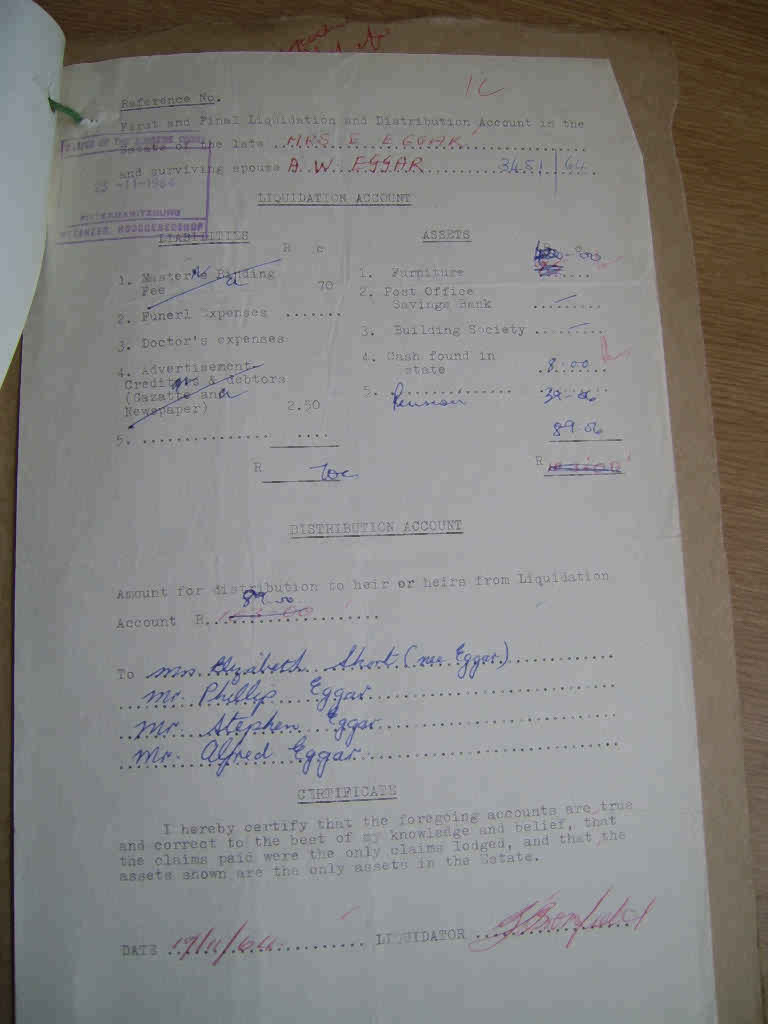 1C
Reference No.
First and Final Liquidation and Distribution Account in the
Estate of the late MRS E. EGGAR
and surviving spouse A.W. EGGAR 3451/64
MASTER OF THE SUPREME COURT
23-11-1964
PIETERMARITZBURG
MEESTER, HOOGGEREGSHOF
LIQUIDATION ACCOUNT
LIABILITIES R c ASSETS
1. Master's Binding Fee 70
2. Funerl Expenses .......
3. Doctor's expenses
4. Advertisement
Creditors & debtors
(Gazatte and
Newspaper) 2.50
5. ............... ....
R 70c
1. Furniture
2. Post Office
Savings Bank
3. Building Society
4. Cash found in
state 8.00
5. Pension 39-06
89.06
R
DISTRIBUTION ACCOUNT
Amount for distribution to heir or heirs from Liquidation
89.00
Account R
To Mrs. Elizabeth Short (nee Eggar)
Mr. Phillip Eggar
Mr. Stephen Eggar
Mr. Alfred Eggar
CERTIFICATE
I hereby certify that the foregoing accounts are true
and correct to the best of my knowledge and belief, that
the claims paid were the only claims lodged, and that the
assets shown are the only assets in the Estate.
DATE 19/11/64 LIQUIDATOR